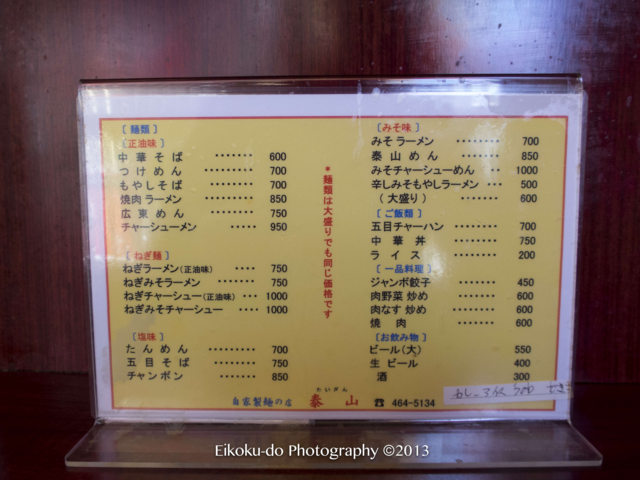 [ 麺類 ]
[正油味]
中華そば ・・・・・・・ 600
つけめん ・・・・・・・・ 700
もやしそば ・・・・・・・ 700
焼肉ラーメン ・・・・・・・・ 850
広東めん ・・・・・・・・ 750
チャーシューメン ・・・・・ 950
[ ねぎ麺 ]
ねぎラーメン(正油味) ・・・・ 750
ねぎみそラーメン ・・・・・・・ 750
ねぎチャーシュー(正油味) ・・・ 1000
ねぎみそチャーシュー ・・・・ 1000
[塩味]
たんめん ・・・・・・・・ 700
五目そば ・・・・・・・・ 750
チャンポン ・・・・・・・・ 850
*麺類は大盛りでも同じ価格です
[みそ味]
みそラーメン ・・・・・・・・ 700
泰山めん ・・・・・・・・ 850
みそチャーシューめん ・・・ 1000
辛しみそもやしラーメン ・・・ 500
(大盛り) ・・・・・・・・ 600
[ご飯類]
五目チャーハン ・・・・・・・・ 700
中華丼 ・・・・・・・・ 750
ライス ・・・・・・・・ 200
[一品料理]
ジャンボ餃子 ・・・・・・・・ 450
肉野菜炒め ・・・・・・・・ 600
肉なす炒め ・・・・・・・・ 600
焼肉 ・・・・・・・・ 600
[お飲み物]
ビール(大) 550
生ビール 400
酒 300
たいざん
自家製麺の店 泰山 ☎ 464-5134
Eikoku-do Photography ©2013